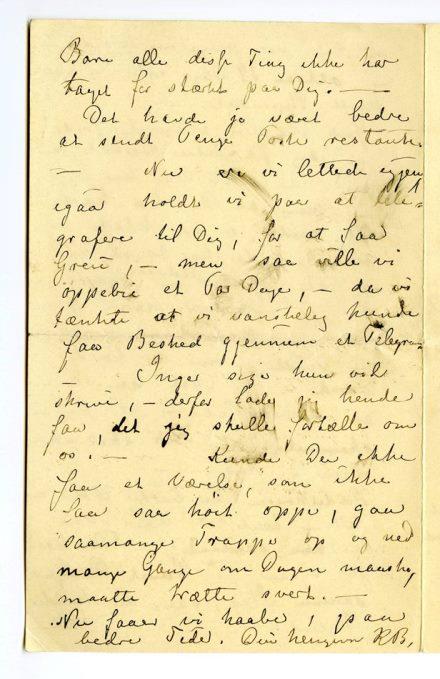 Bare alle disse Ting ikke har
taget for stærkt paa Dig. —
Det havde jo været bedre
at sendt Penge Poste restante.
— Nu er vi lettede igjen
igaar holdt vi paa at tele-
grafere til Dig, for at faa
Greie, — men saa ville vi
oppebie et Par Dage, — da vi
tænkte at vi vanskelig kunde
faa Besked gjennem et Telegram
Inger siger hun vil
skrive, — derfor lader jeg hende
faa det jeg skulle fortælle om
os. — Kunde Du ikke
faa et Værelse, som ikke
laa saa høit oppe, gaa
saamange Trapper op og ned
mange Gange om Dagen maa
maatte trætte svert. —
Nu faar vi haabe, paa
bedre Tider. Din hengivne RB,